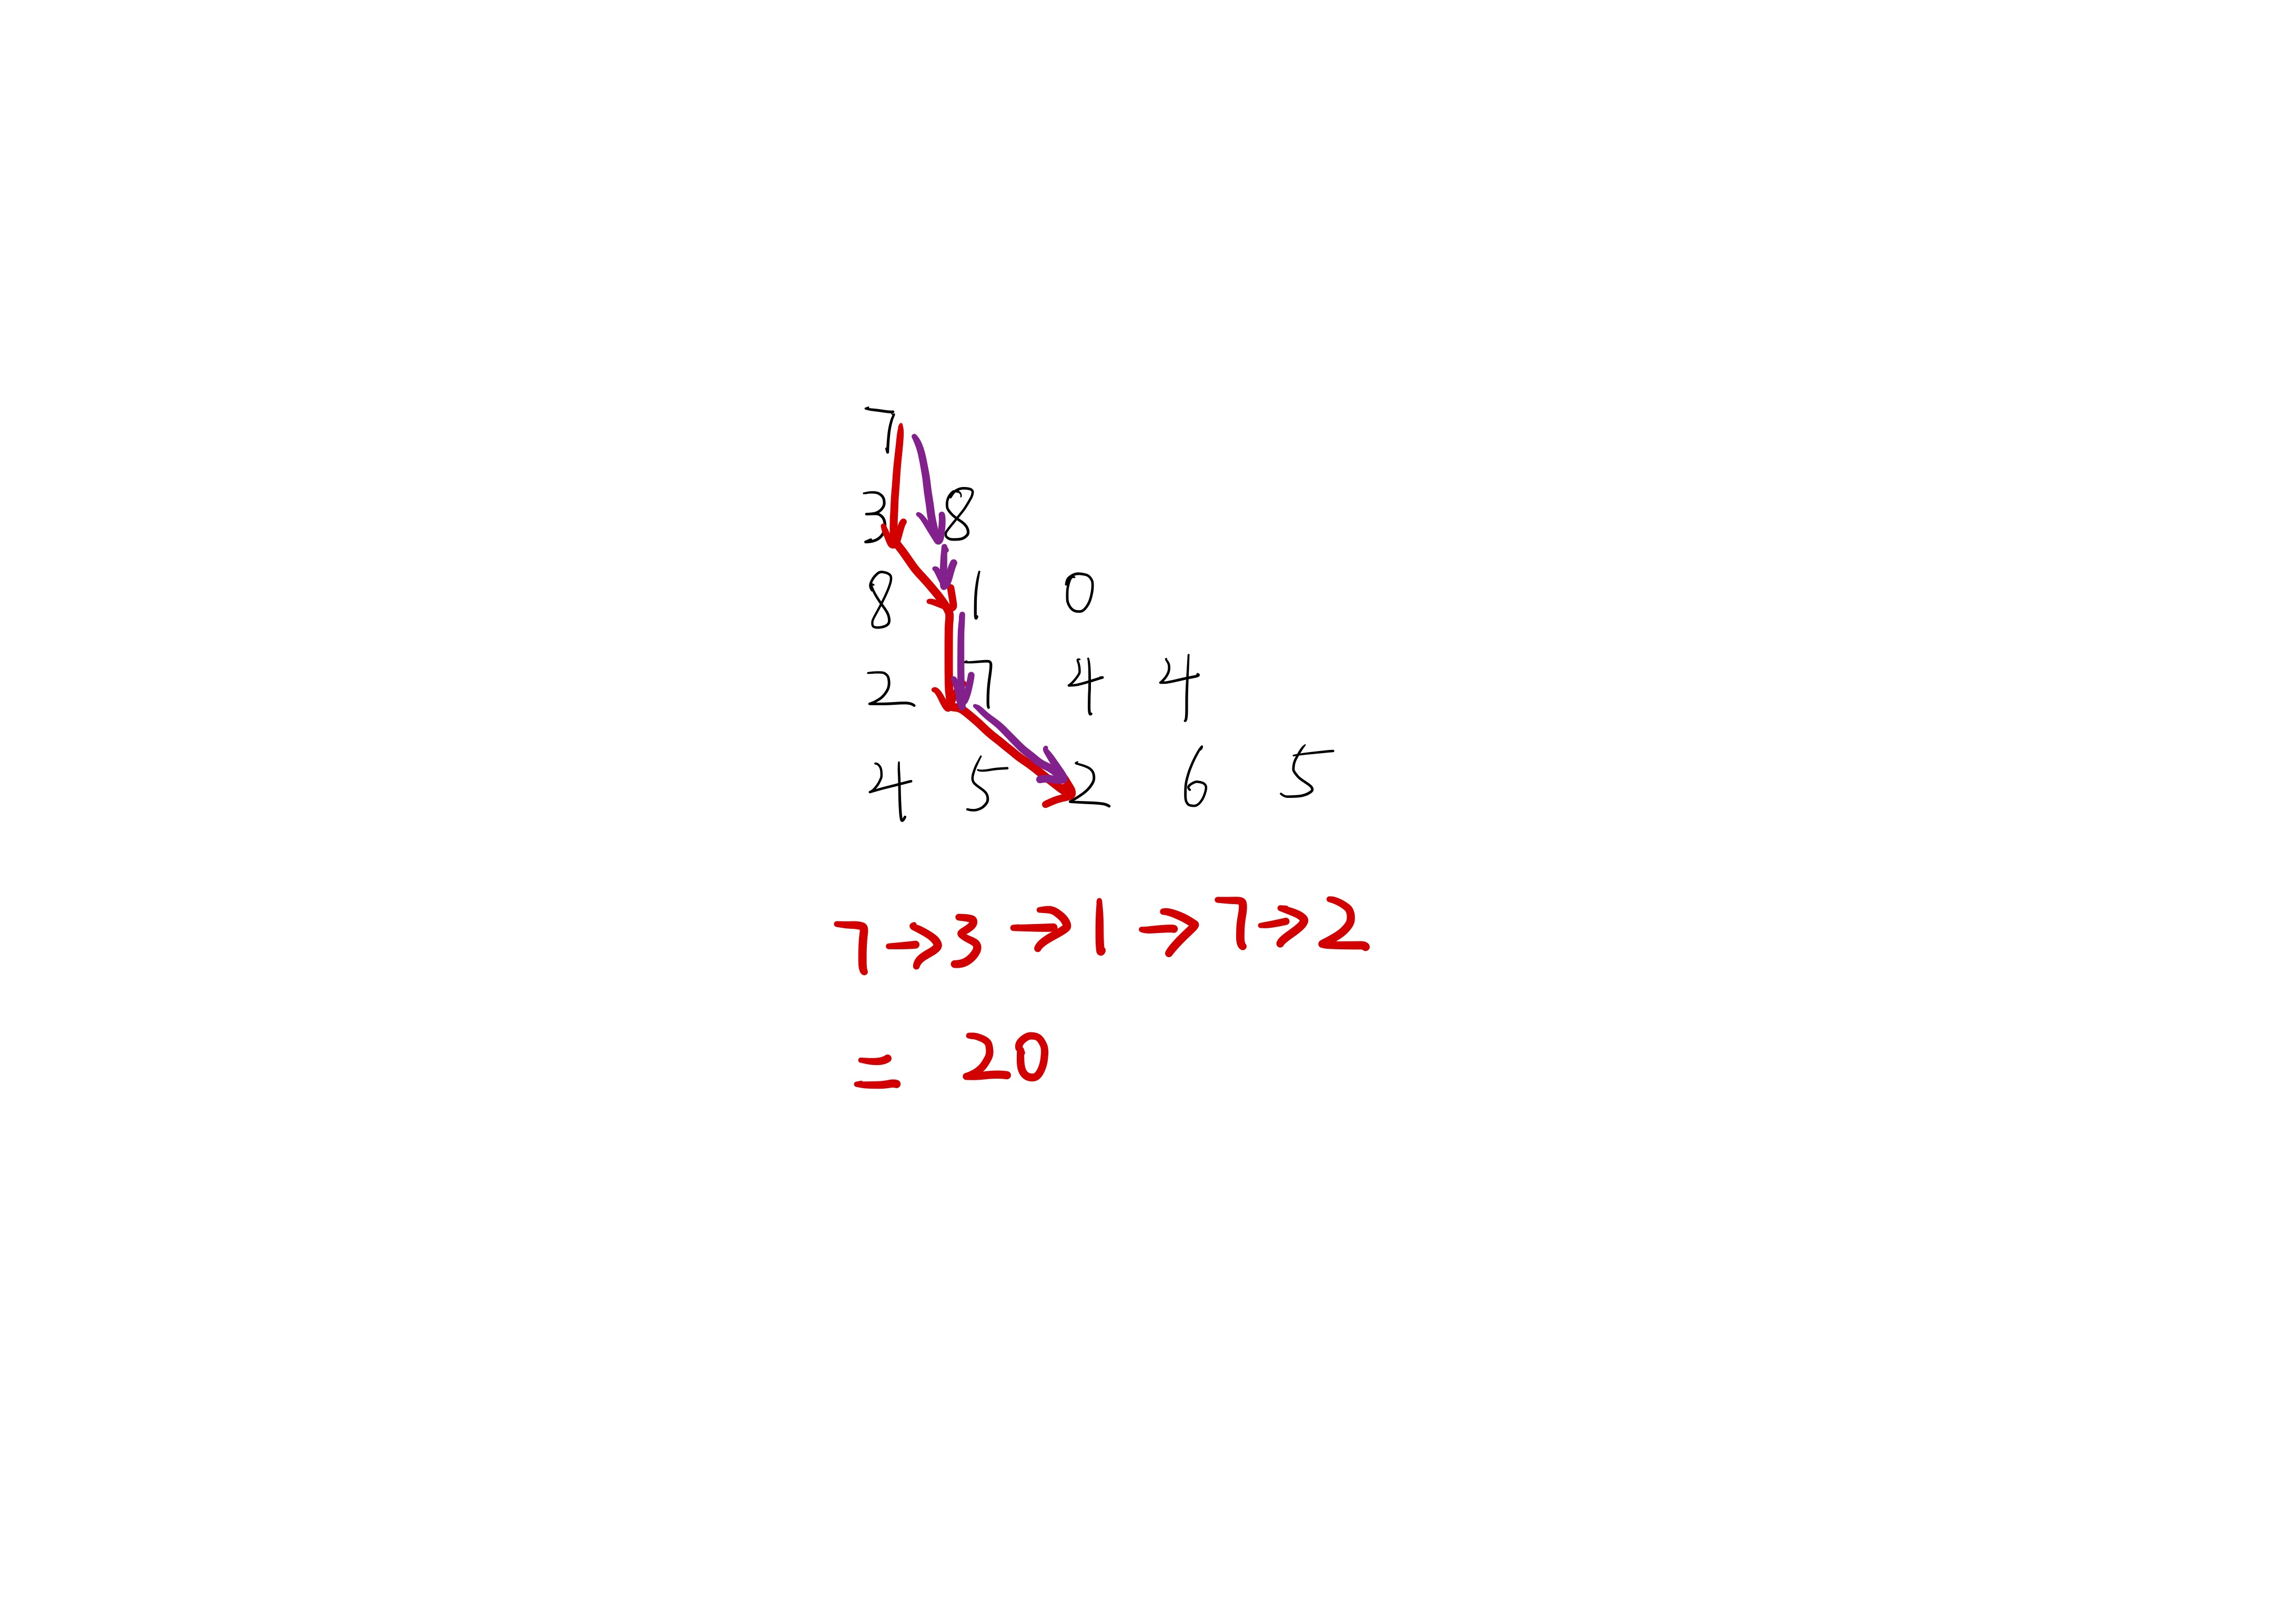 7
3 8
8 1 0
2 7 4 4
4 5 2 6 5
7→3→1→7→2
= 20